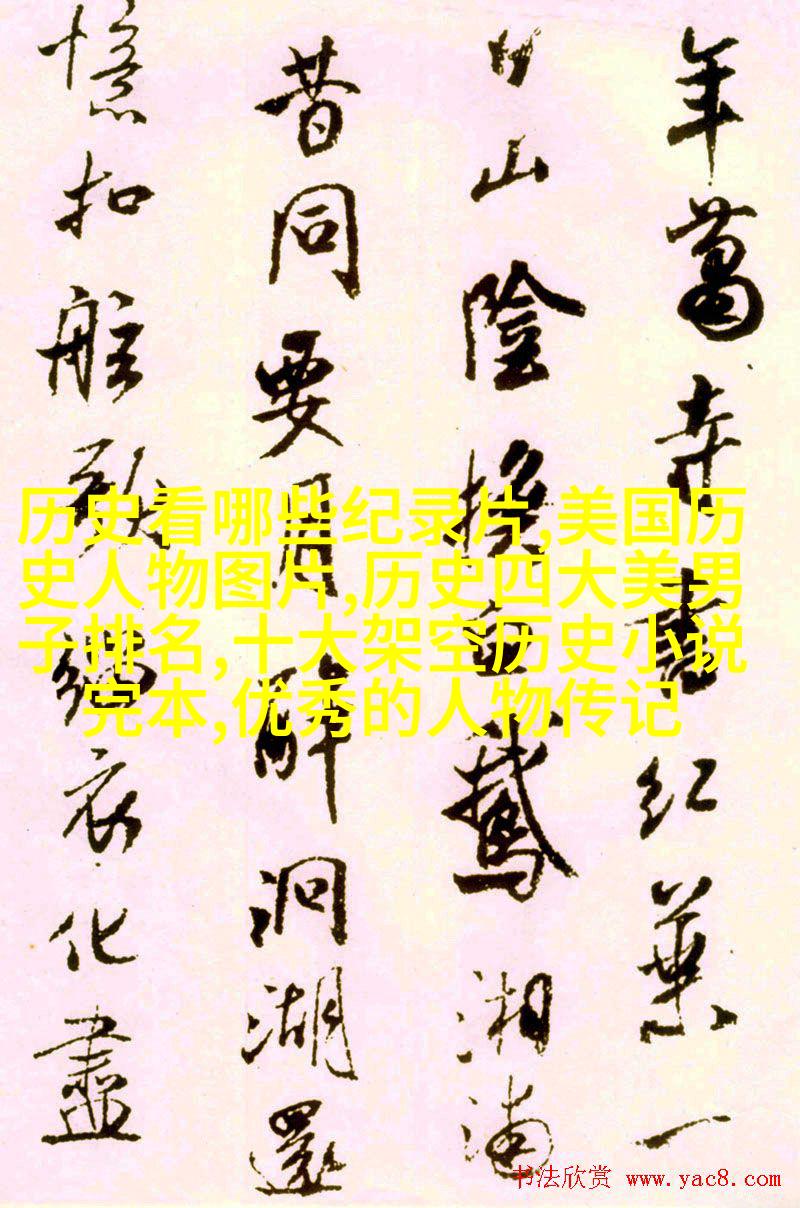 年蕭寺書红葉一
日山陰換白鵝湘浦
昔同要月醉洞湖還
憶扣舷歌緇衣化盡
历史看哪些纪录片,美国历
史人物图片,历史四大美男
子排名,十大架空历史小说
完本,优秀的人物传记
书法欣赏 www.yac8.com